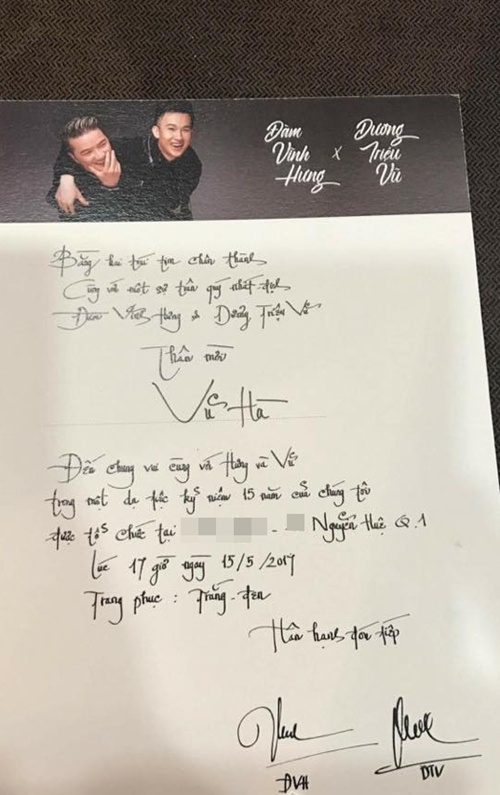 Đàm
Vĩnh
Hưng
x
Dương
Triệu
Vũ
Bằng hai trái tim chân thành
Cùng với một sự trân quý nhất định
Đàm Vĩnh Hưng & Dương Triệu Vũ
Thân mời
Vũ Hà
Đến chung vui cùng với Hưng và Vũ
trong một dạ tiệc kỷ niệm 15 năm của chúng tôi
được tổ chức tại - Nguyễn Huệ Q.1
Lúc 17 giờ ngày 15/5/2017
Trang phục : Trắng - đen
Hân hạnh đón tiếp
ĐVH
DTV